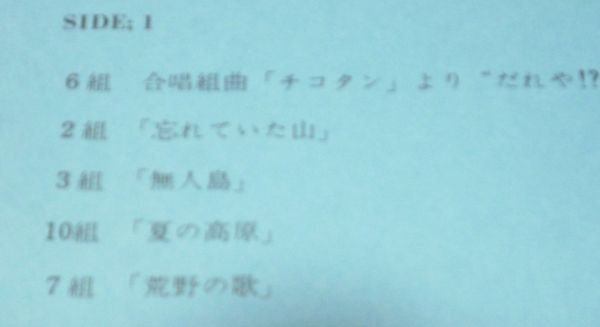 SIDE; 1
6組 合唱組曲「チコタン」より “だれや!?
2組 「忘れていた山」
3組 「無人島」
10組 「夏の高原」
7組 「荒野の歌」